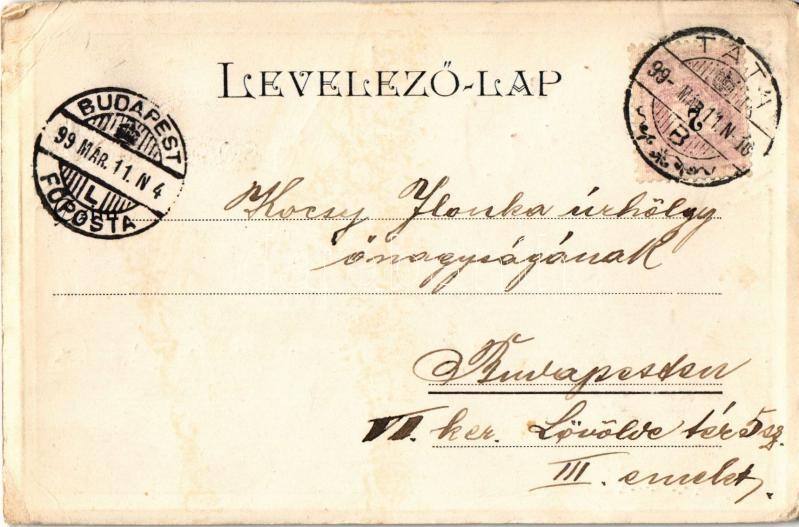 LEVELEZŐ-LAP
TATA
99- MÁR. 11. N.
B
BUDAPEST
99 MÁR. 11. N 4
L
FŐPOSTA
Kocsy Ilonka úrhölgy
őnagyságának
Budapesten
VI. ker. Lövölde tér 5 sz.
III. emelet,